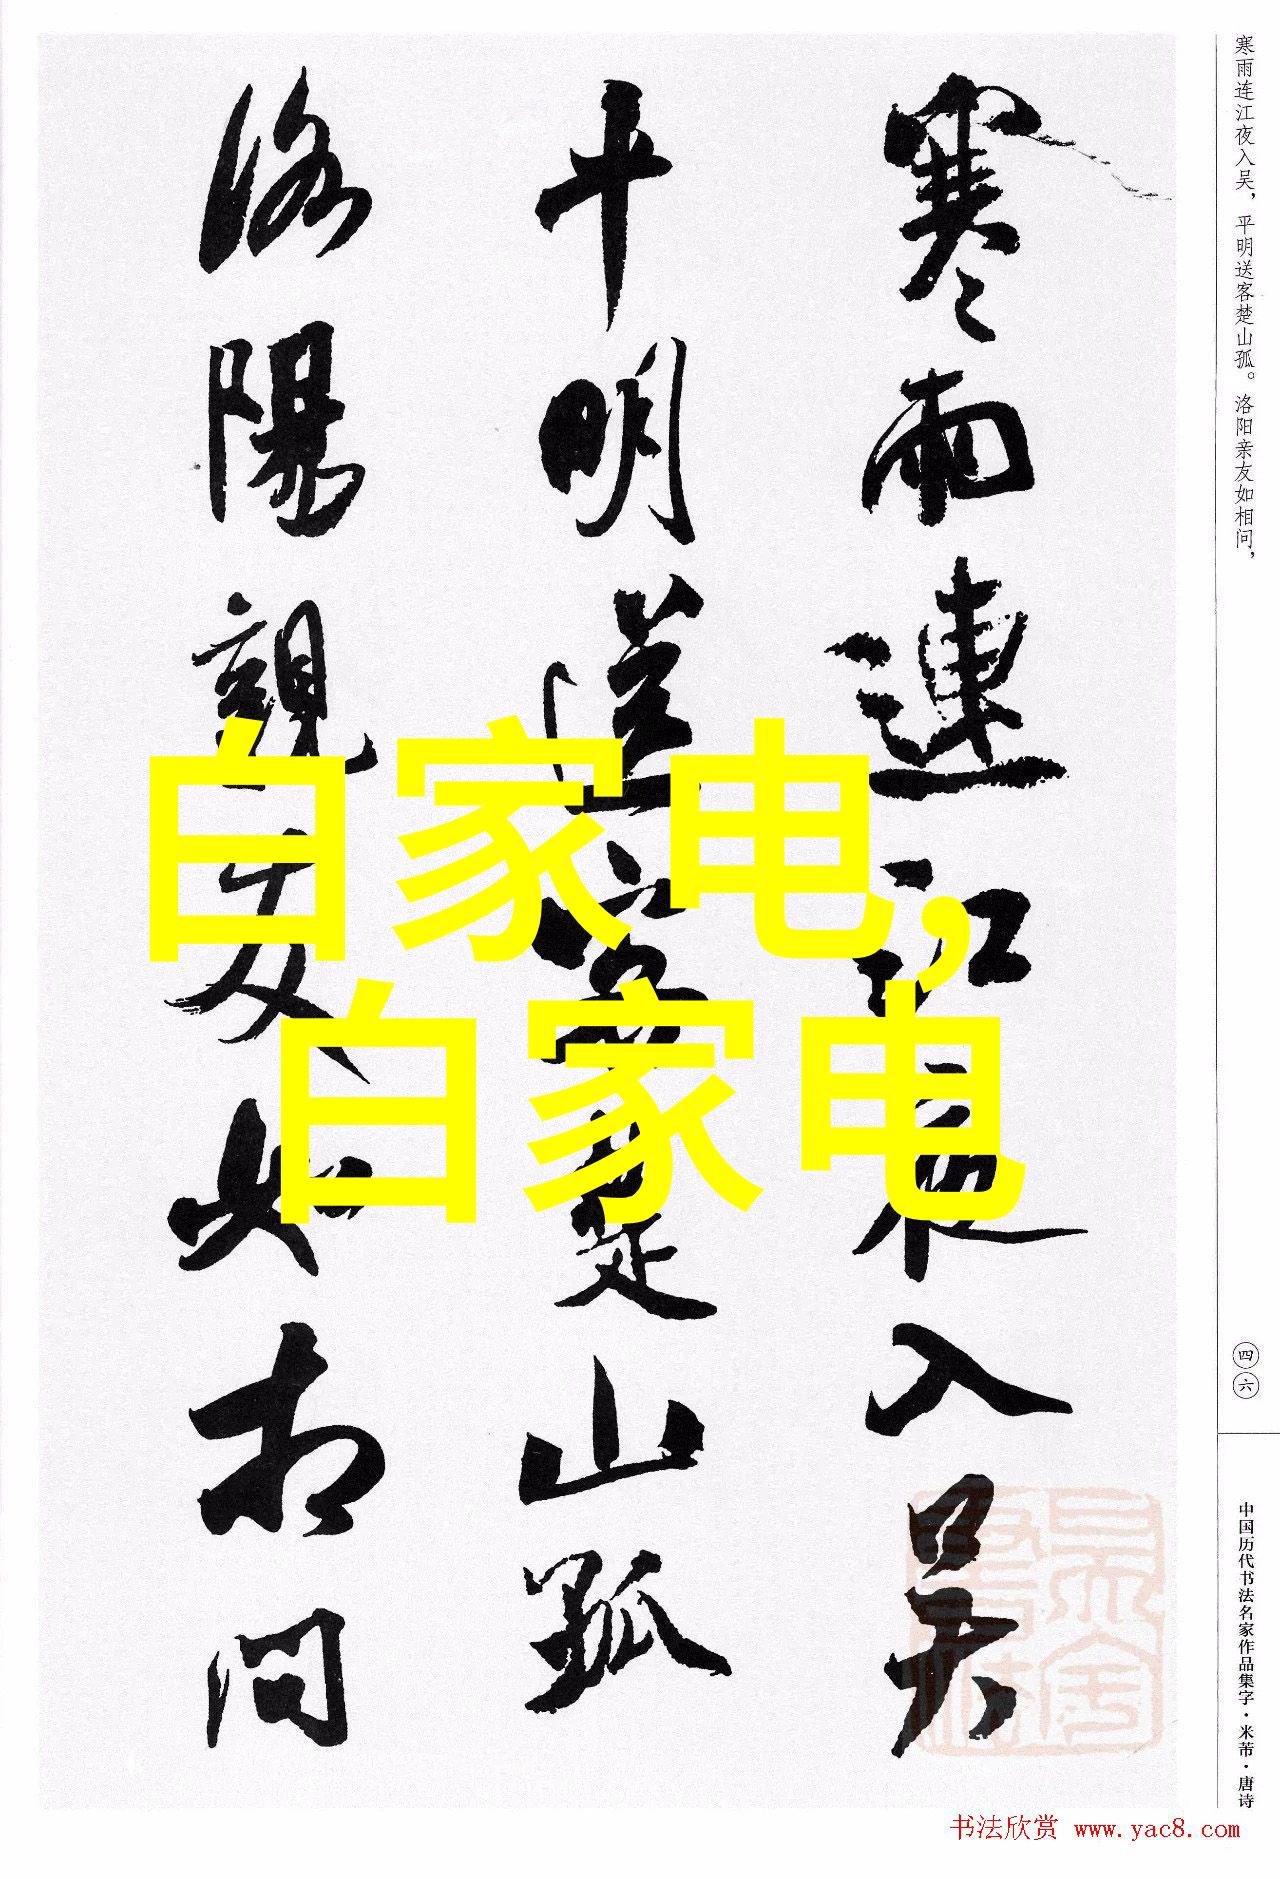 寒雨連江夜入吴
平明送客楚山孤
洛陽親友如相问
白家电，
白家电
寒雨连江夜入吴，平明送客楚山孤。洛阳亲友如相问，
四六
中国历代书法名家作品集字·米芾·唐诗
书法欣赏 www.yac8.com